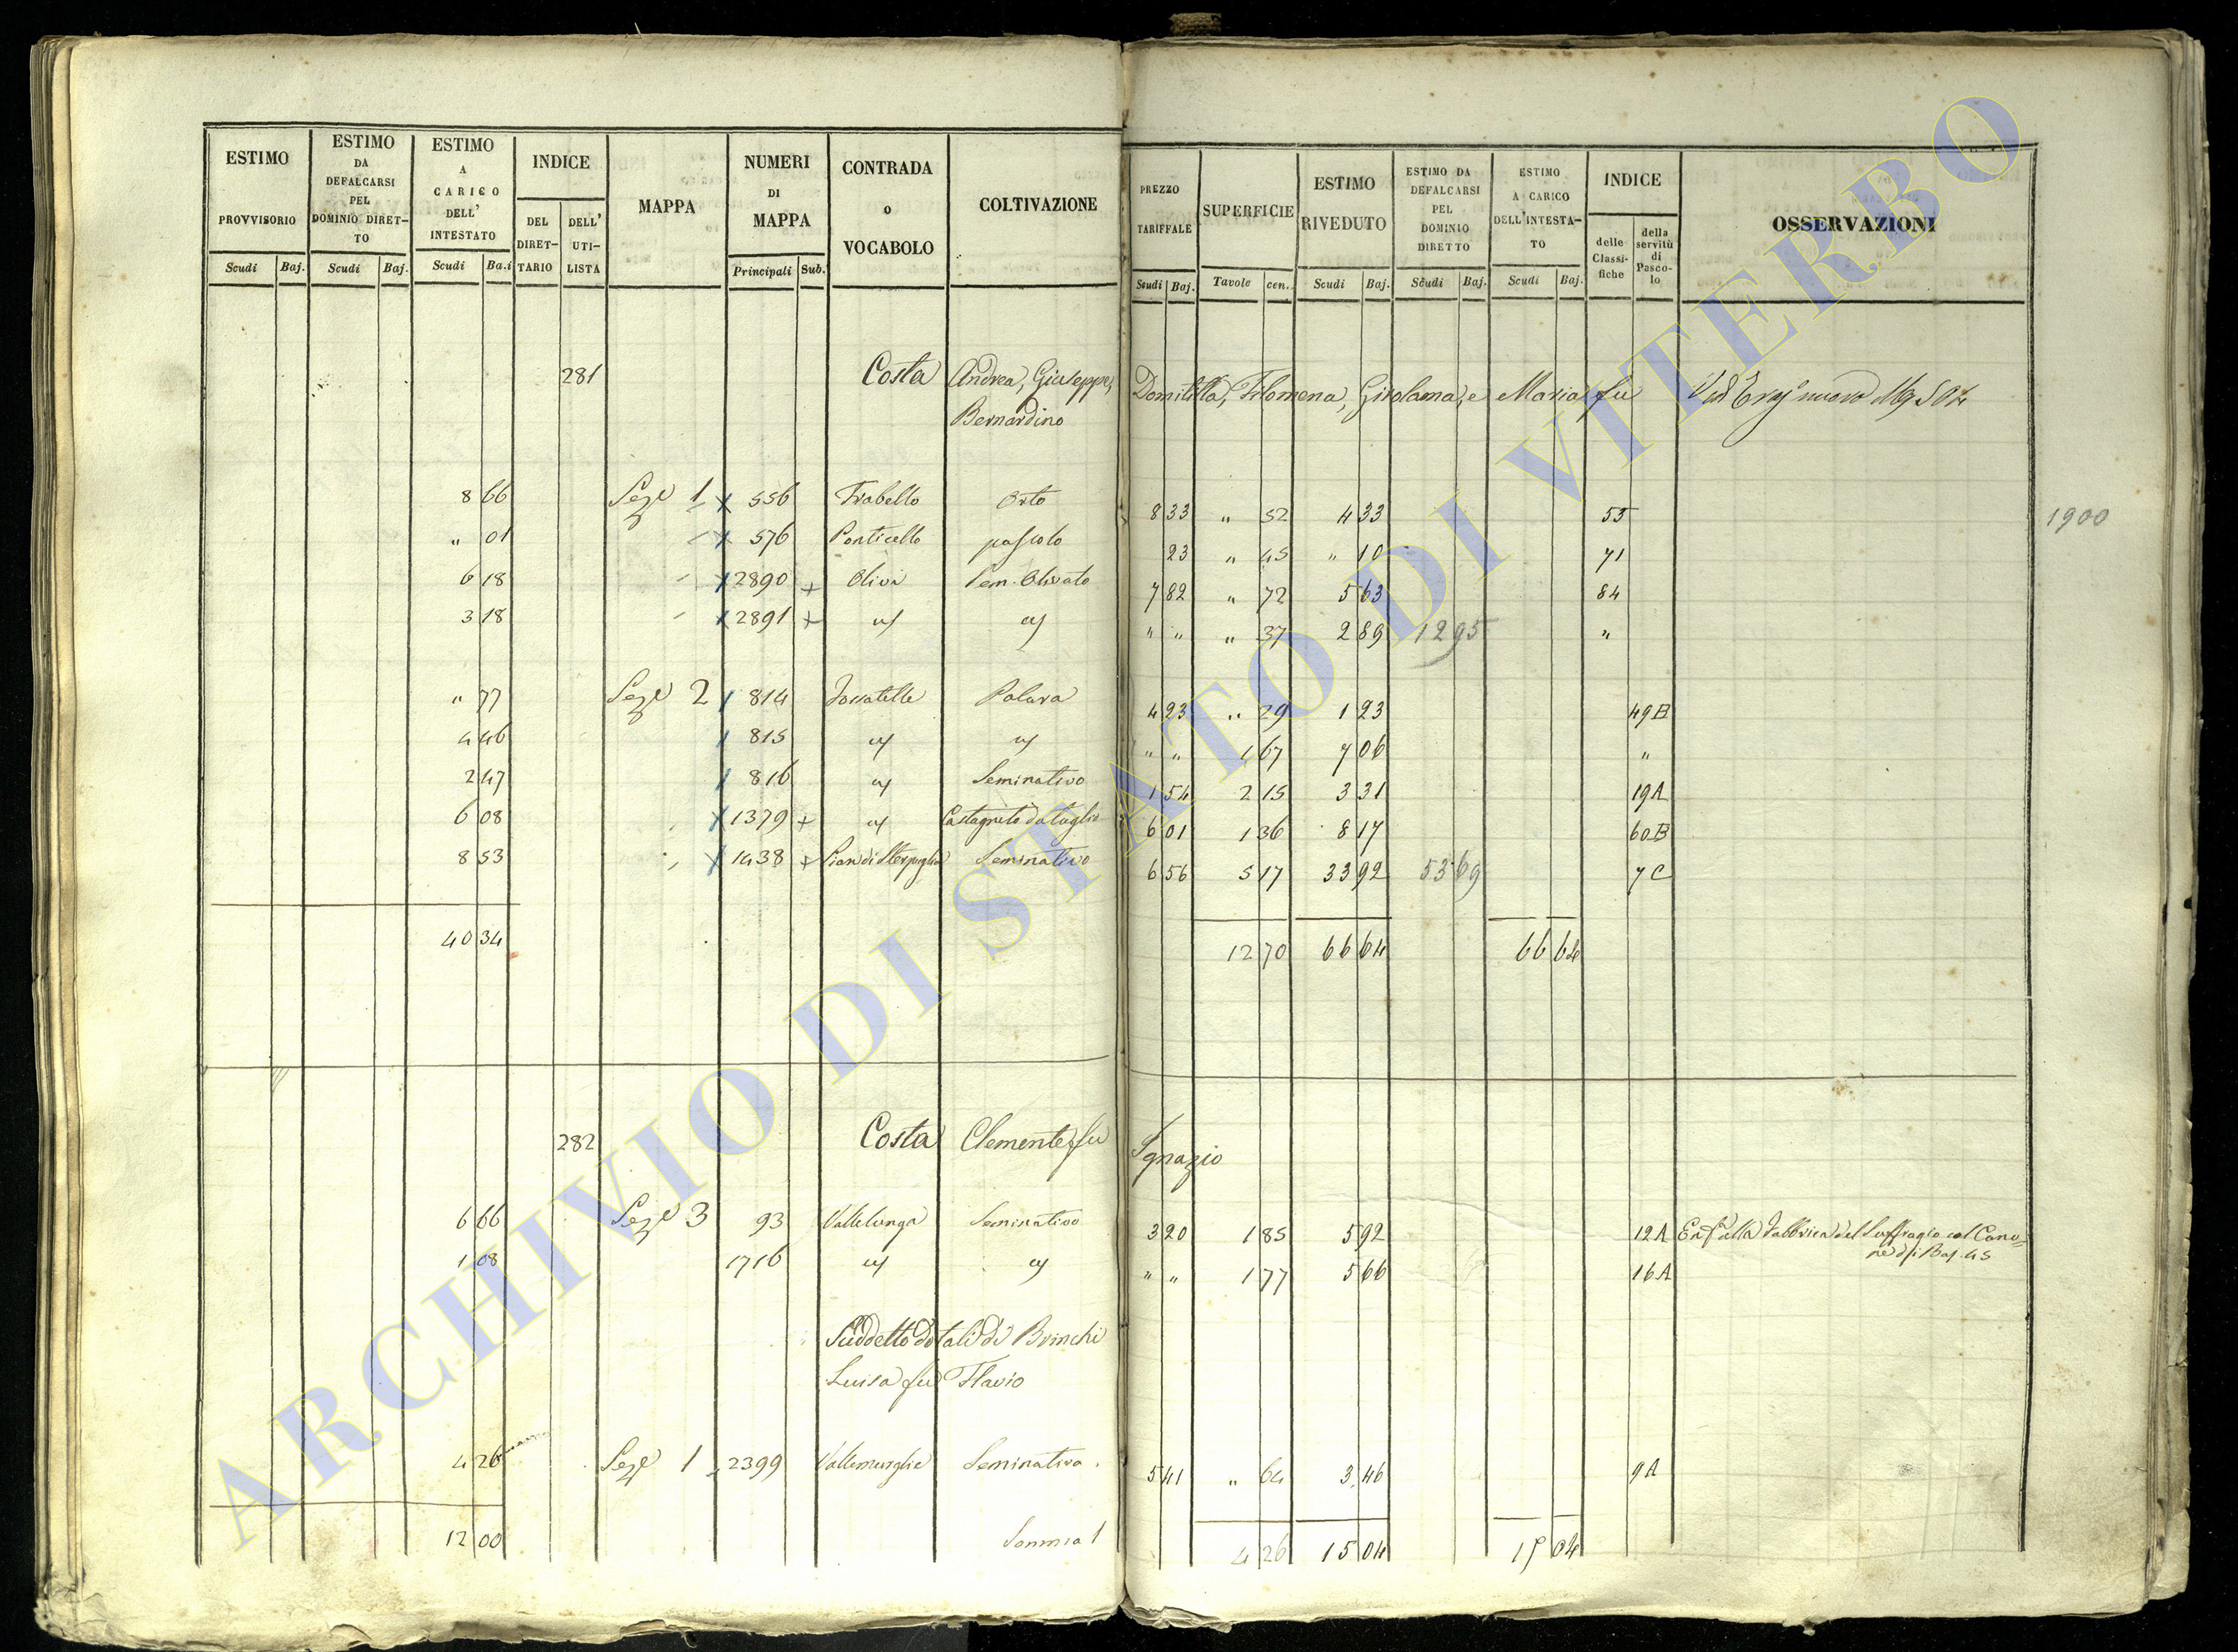 ESTIMO PROVVISORIO Scudi Baj.
ESTIMO DA DEFALCARSI PEL DOMINIO DIRETTO Scudi Baj.
ESTIMO A CARICO DELL' INTESTATO Scudi Ba.i
INDICE DEL DIRETTARIO DELL' UTILISTA
MAPPA
NUMERI DI MAPPA Principali Sub.
CONTRADA o VOCABOLO
COLTIVAZIONE
PREZZO TARIFFALE Scudi Baj.
SUPERFICIE Tavole cen.
ESTIMO RIVEDUTO Scudi Baj.
ESTIMO DA DEFALCARSI PEL DOMINIO DIRETTO Scudi Baj.
ESTIMO A CARICO DELL'INTESTATO Scudi Baj.
INDICE delle Classifiche della servitù di Pascolo
OSSERVAZIONI
281 Costa Andrea, Giuseppe, Domitilla, Filomena, Girolama, e Maria fu nuovo
Bernardino
8 66 Seze 1 x 556 Orto 8 33 " 52 4 33 55 1900
" 01 x 576 Ponticello pascolo 23 " 45 " 10 71
6 18 x 2890 + Olivi Sem. Olivato 7 82 " 72 5 63 84
3 18 x 2891 + " " " 37 2 89 12 95 "
" 77 Seze 2 814 Fossatelle 4 23 " 29 1 23 49B
4 46 815 " " 1 67 7 06 "
2 47 816 Seminativo 1 54 2 15 3 31 19A
6 08 x 1379 + Castagneto da taglio 6 01 1 36 8 17 60B
8 53 x 1438 + Pian di Seminativo 6 56 5 17 33 92 53 69 7C
40 34 12 70 66 64 66 64
282 Costa Clemente fu Ignazio
6 66 Seze 3 93 Vallelunga Seminativo 3 20 1 85 5 92 12A Enf.a alla Fabbrica del Suffragio col Cano=
ne di Baj. 45
1 08 1716 " " 1 77 5 66 16A
Suddetto dotali di Brinchi
Luisa fu Flavio
4 26 Seze 1 2399 Seminativa 5 41 " 64 3,46 9A
12 00 Somma l 4 26 15 04 15 04
ARCHIVIO DI STATO DI VITERBO